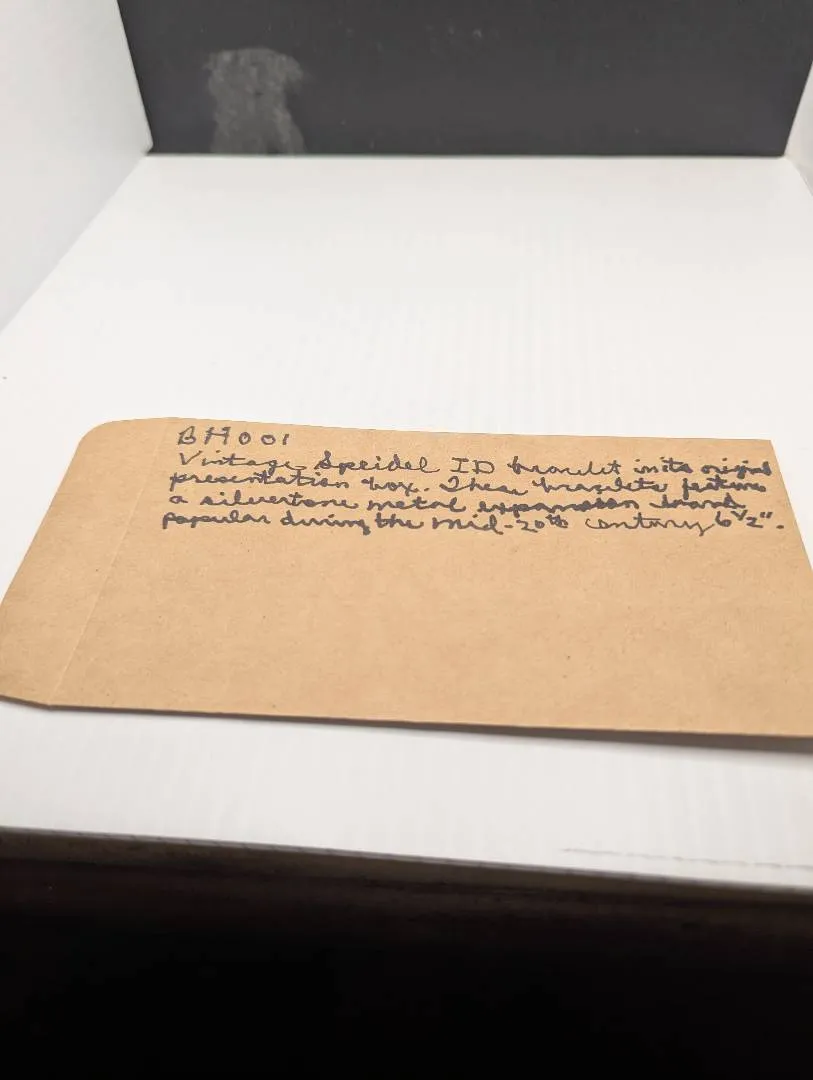 BH001
Vintage Speidel ID bracelet in its original
presentation box. These bracelets feature
a silvertone metal expansion band
popular during the mid-20th century 6 1/2".